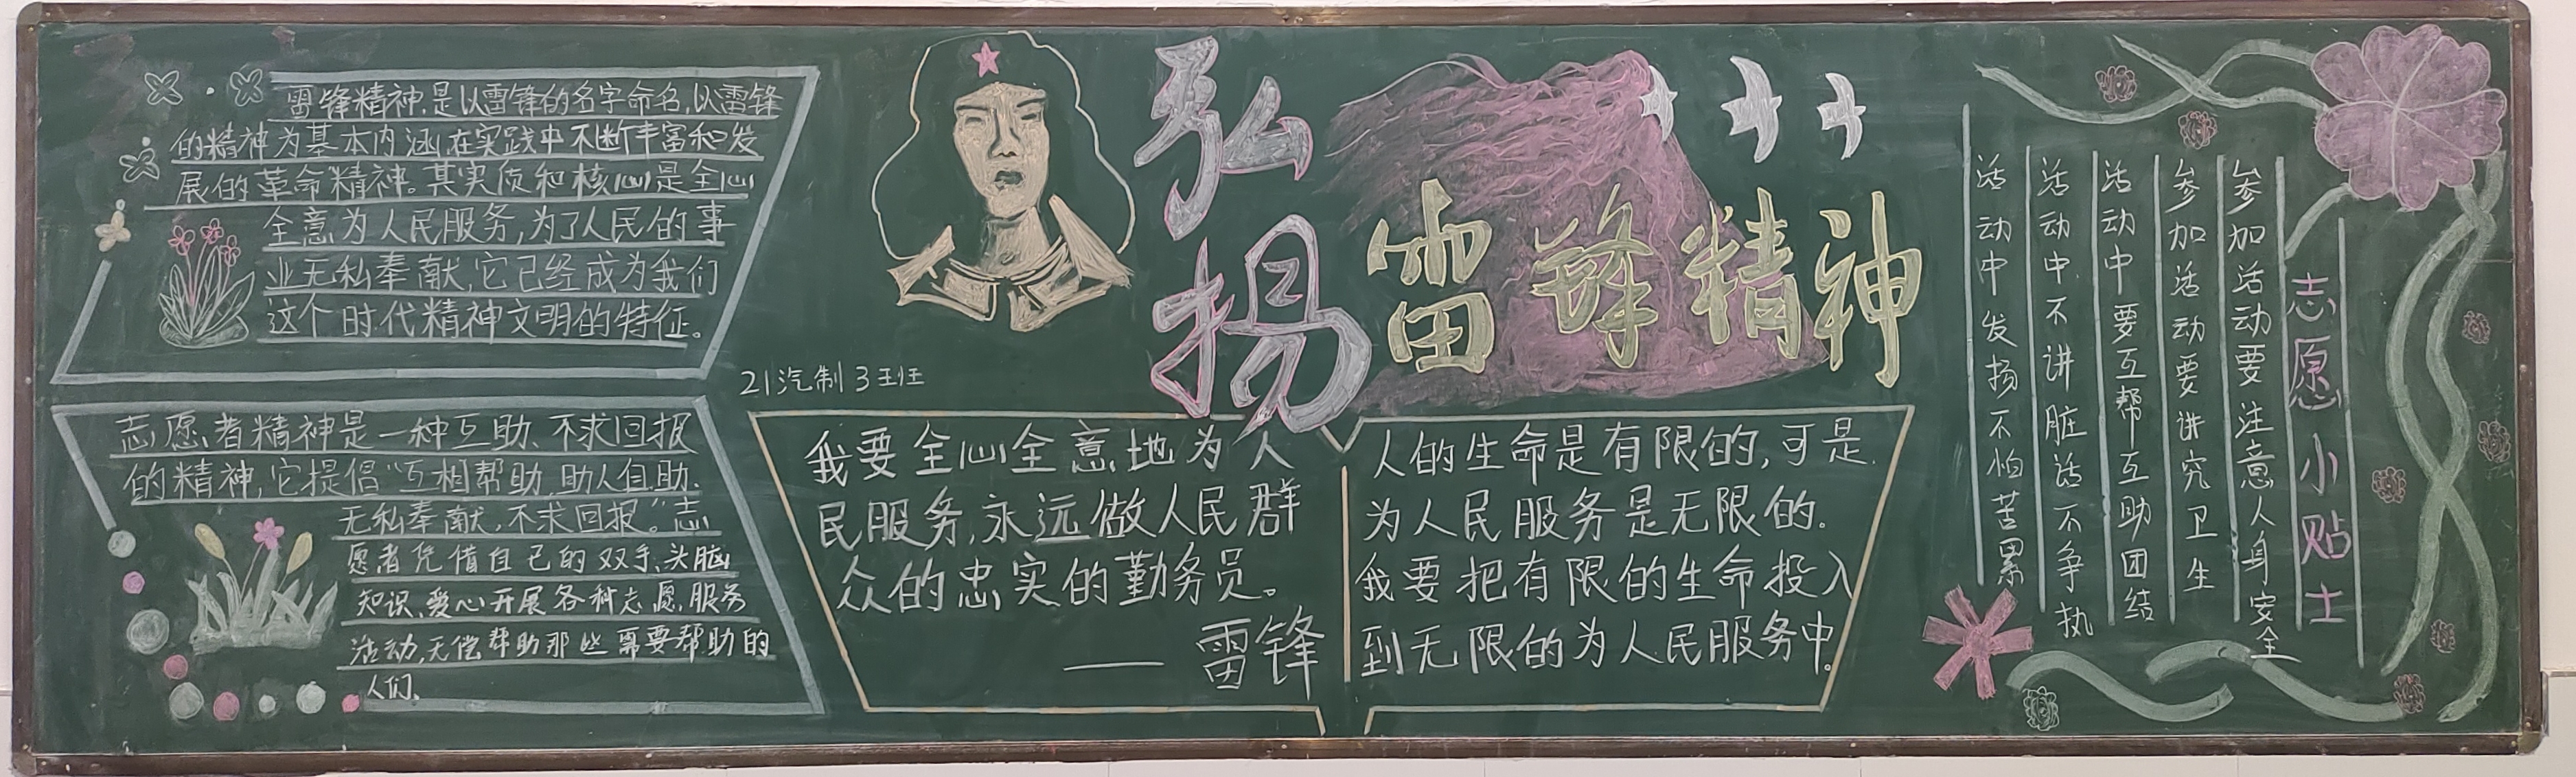 雷锋精神,是以雷锋的名字命名,以雷锋
的精神为基本内涵,在实践中不断丰富和发
展的革命精神。其实质和核心是全心
全意为人民服务,为了人民的事
业无私奉献,它已经成为我们
这个时代精神文明的特征。
志愿者精神是一种互助、不求回报
的精神,它提倡“互相帮助、助人自助、
无私奉献,不求回报。”志
愿者凭借自己的双手、头脑、
知识、爱心开展各种志愿服务
活动,无偿帮助那些需要帮助的
人们。
弘扬
雷锋精神
21汽制3班
我要全心全意地为人
民服务,永远做人民群
众的忠实的勤务员。
—— 雷锋
人的生命是有限的,可是
为人民服务是无限的.
我要把有限的生命投入
到无限的为人民服务中。
志愿小贴士
参加活动要注意人身安全
参加活动要讲究卫生
活动中要互帮互助团结
活动中不讲脏话不争执
活动中发扬不怕苦累